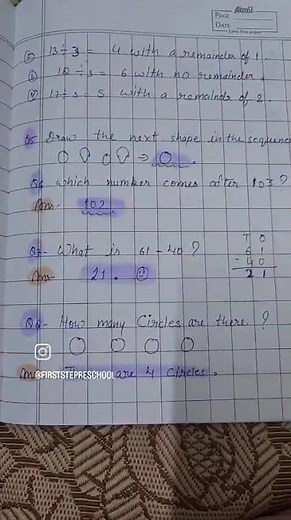 PAGE
DATE
13 ÷ 3 = 4 with a remainder of 1.
18 ÷ 3 = 6 with no remainder
17 ÷ 3 = 5 with a remainder of 2.
Q5 Draw the next shape in the sequence
Q6 which number comes after 103?
Ans- 102
Q7- What is 61 - 40?
T O
6 1
- 4 0
2 1
Ans- 21.
Q8- How many Circles are there?
@FIRSTSTEPRESCHOOL
Ans are 4 circles.